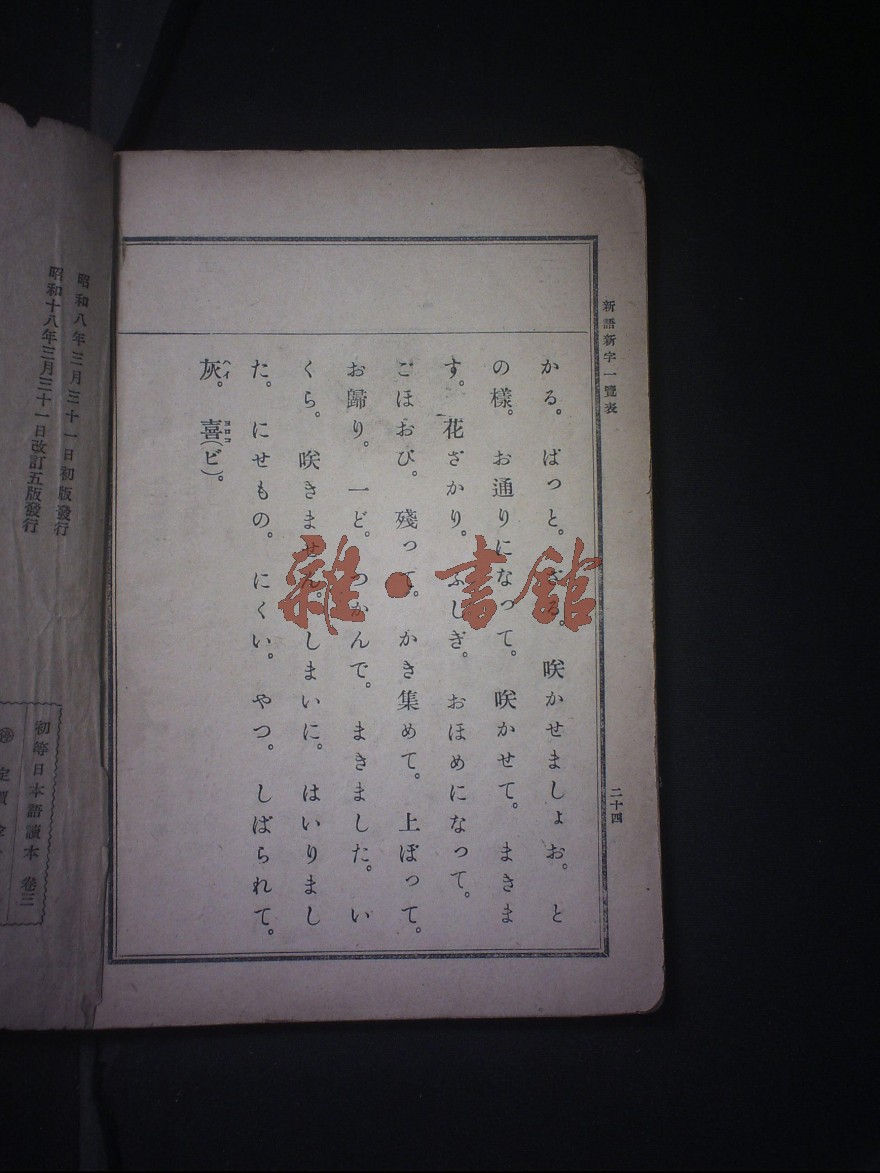 新語新字一覽表
二十四
かる。 ぱっと。 ざる。 咲かせましょお。 と
の樣。 お通りになって。 咲かせて。 まきま
す。 花ざかり。 ふしぎ。 おほめになって。
ごほおび。 殘って。 かき集めて。 上ぼって。
お歸り。 一ど。 つかんで。 まきました。 い
くら。 咲きません。 しまいに。 はいりまし
た。 にせもの。 にくい。 やつ。 しばられて。
灰。 喜(ビ)。
雜·書館
昭和八年三月三十一日初版發行
昭和十八年三月三十一日改訂五版發行
初等日本語讀本 卷三
定價